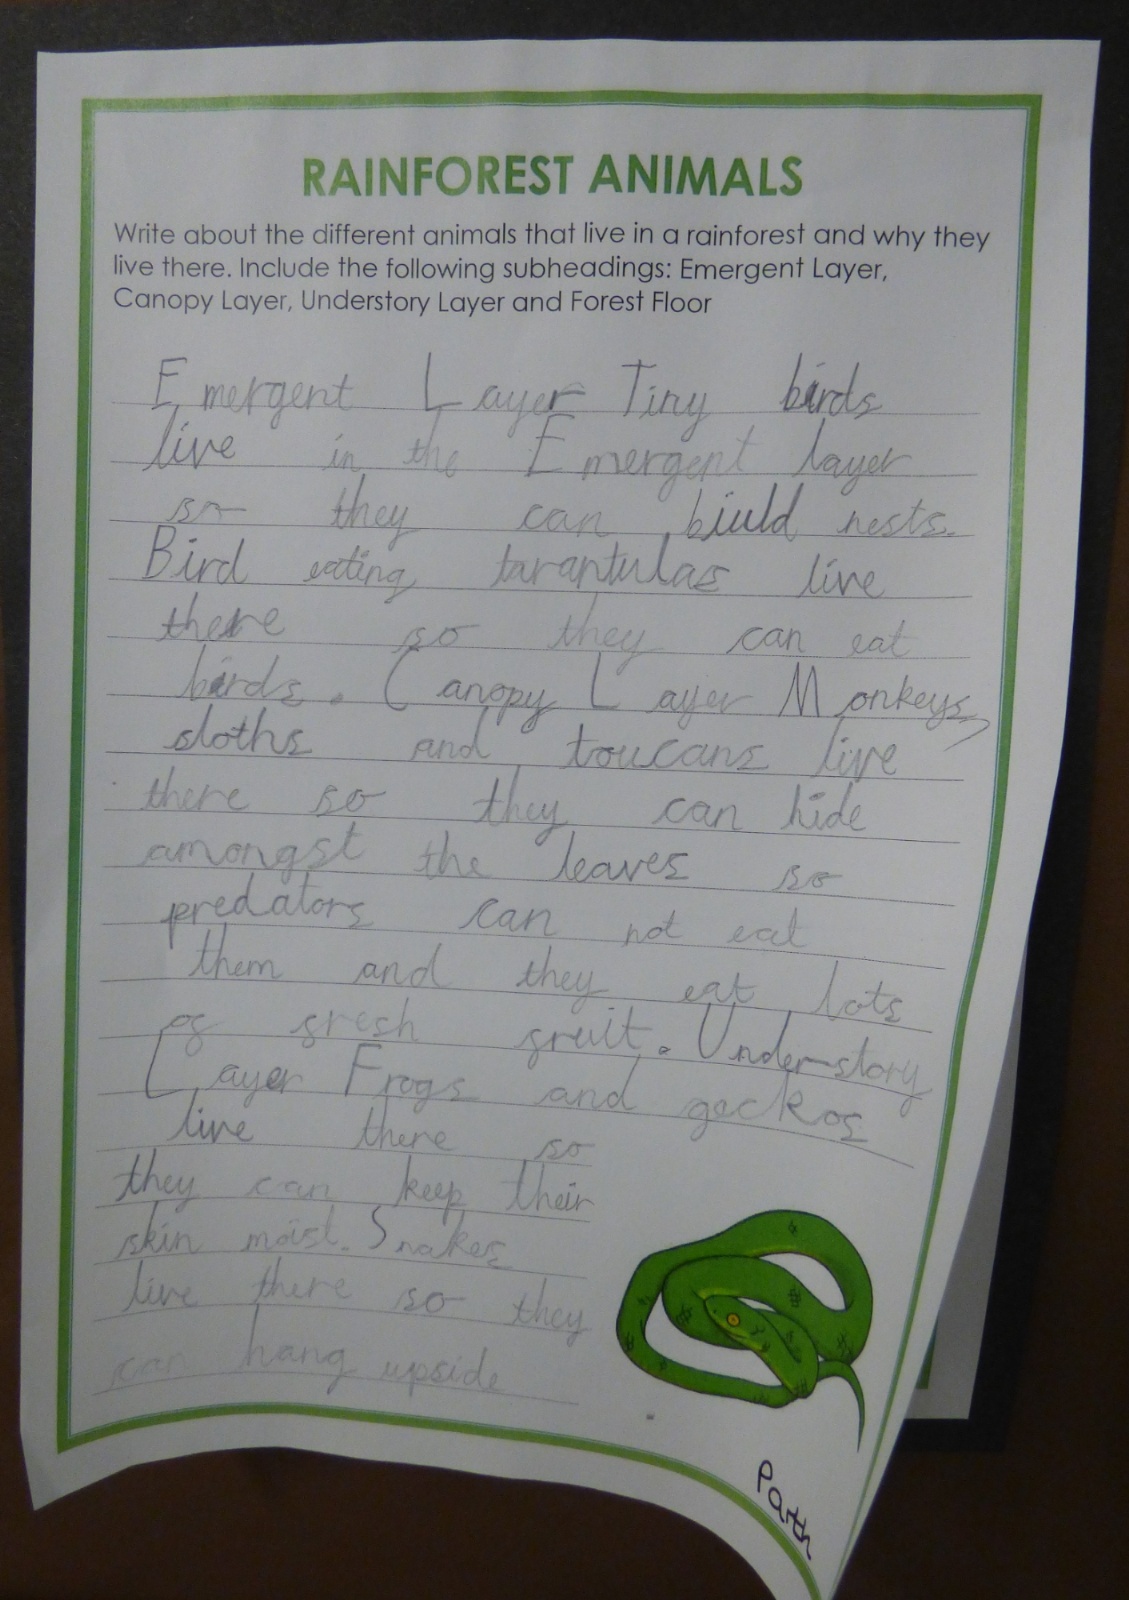 RAINFOREST ANIMALS
Write about the different animals that live in a rainforest and why they
live there. Include the following subheadings: Emergent Layer,
Canopy Layer, Understory Layer and Forest Floor
Emergent Layer Tiny birds
live in the Emergent layer
so they can biuld nests.
Bird eating tarantulas live
there so they can eat
birds. Canopy Layer Monkeys,
sloths and toucans live
there so they can hide
amongst the leaves so
predators can not eat
them and they eat lots
of fresh fruit. Understory
Layer Frogs and geckos
live there so
they can keep their
skin moist. Snakes
live there so they
can hang upside
Parth